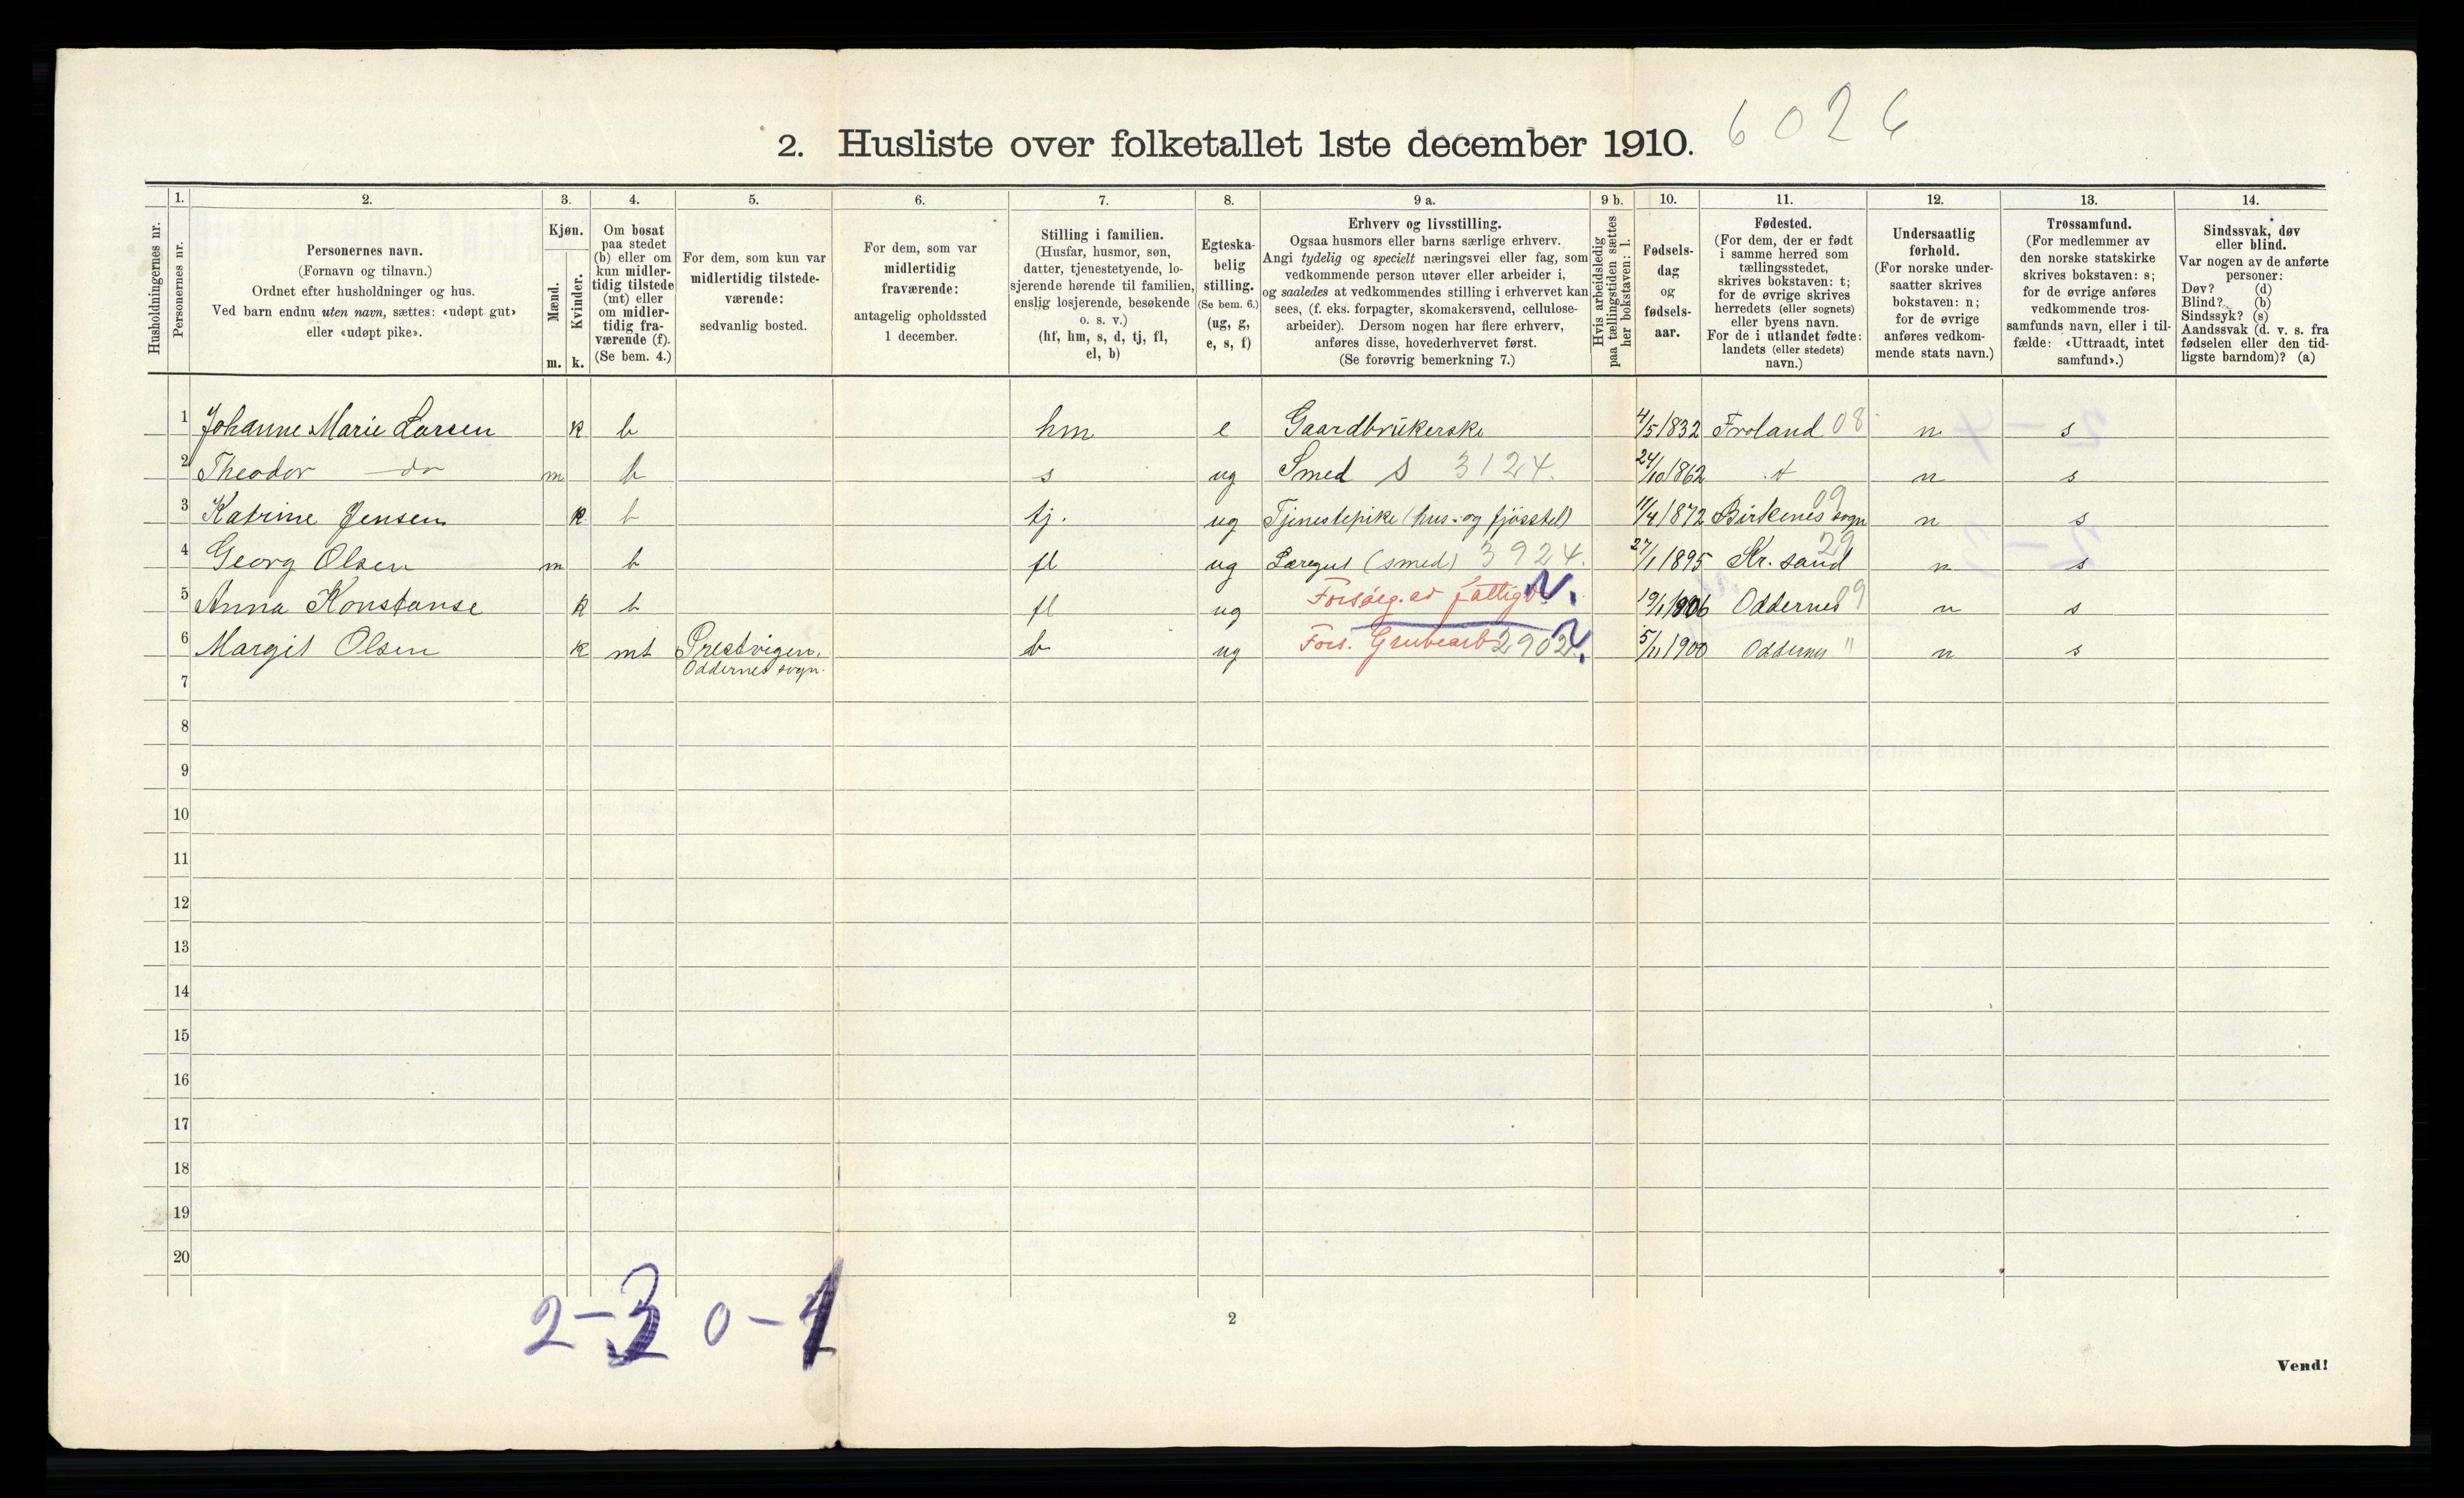 6026
2. Husliste over folketallet 1ste december 1910.
Husholdningernes nr.
1.
Personernes nr.
2.
Personernes navn.
(Fornavn og tilnavn.)
Ordnet efter husholdninger og hus.
Ved barn endnu uten navn, sættes: «udøpt gut»
eller «udøpt pike».
3.
Kjøn.
Mænd.
Kvinder.
m. k.
4.
Om bosat
paa stedet
(b) eller om
kun midler-
tidig tilstede
(mt) eller
om midler-
tidig fra-
værende (f).
(Se bem. 4.)
5.
For dem, som kun var
midlertidig tilstede-
værende:
sedvanlig bosted.
6.
For dem, som var
midlertidig
fraværende:
antagelig opholdssted
1 december.
7.
Stilling i familien.
(Husfar, husmor, søn,
datter, tjenestetyende, lo-
sjerende hørende til familien,
enslig losjerende, besøkende
o. s. v.)
(hf, hm, s, d, tj, fl,
el, b)
8.
Egteska-
belig
stilling.
(Se bem. 6.)
(ug, g,
e, s, f)
9 a.
Erhverv og livsstilling.
Ogsaa husmors eller barns særlige erhverv.
Angi tydelig og specielt næringsvei eller fag, som
vedkommende person utøver eller arbeider i,
og saaledes at vedkommendes stilling i erhvervet kan
sees, (f. eks. forpagter, skomakersvend, cellulose-
arbeider). Dersom nogen har flere erhverv,
anføres disse, hovederhvervet først.
(Se forøvrig bemerkning 7.)
9 b.
Hvis arbeidsledig
paa tællingstiden sættes
her bokstaven: l.
10.
Fødsels-
dag
og
fødsels-
aar.
11.
Fødested.
(For dem, der er født
i samme herred som
tællingsstedet,
skrives bokstaven: t;
for de øvrige skrives
herredets (eller sognets)
eller byens navn.
For de i utlandet fødte:
landets (eller stedets)
navn.)
12.
Undersaatlig
forhold.
(For norske under-
saatter skrives
bokstaven: n;
for de øvrige
anføres vedkom-
mende stats navn.)
13.
Trossamfund.
(For medlemmer av
den norske statskirke
skrives bokstaven: s;
for de øvrige anføres
vedkommende tros-
samfunds navn, eller i til-
fælde: «Uttraadt, intet
samfund».)
14.
Sindssvak, døv
eller blind.
Var nogen av de anførte
personer:
Døv? (d)
Blind? (b)
Sindssyk? (s)
Aandssvak (d. v. s. fra
fødselen eller den tid-
ligste barndom)? (a)
1 Johanne Marie Larsen k b hm e Gaardbrukerske 4/5 1832 Froland 08 n s
2 Theodor do m b s ug Smed s 3124. 24/10 1862 t n s
3 Katrine Jensen k b tj. ug Tjenestepike (hus- og fjøsstel) 11/4 1872 Birkenes sogn 09 n s
4 Georg Olsen m b fl ug Læregut (smed) 3924. 27/1 1895 Kr. sand 29 n s
5 Anna Konstanse k b fl ug Forsørg. av fattigv. 19/1 1906 Oddernes 09 n s
6 Margit Olsen k mt Prestvigen, b ug Fors. Grubearb 2902 5/11 1900 Oddernes " n s
Oddernes sogn.
7
8
9
10
11
12
13
14
15
16
17
18
19
20
2-3 0-1
2
Vend!